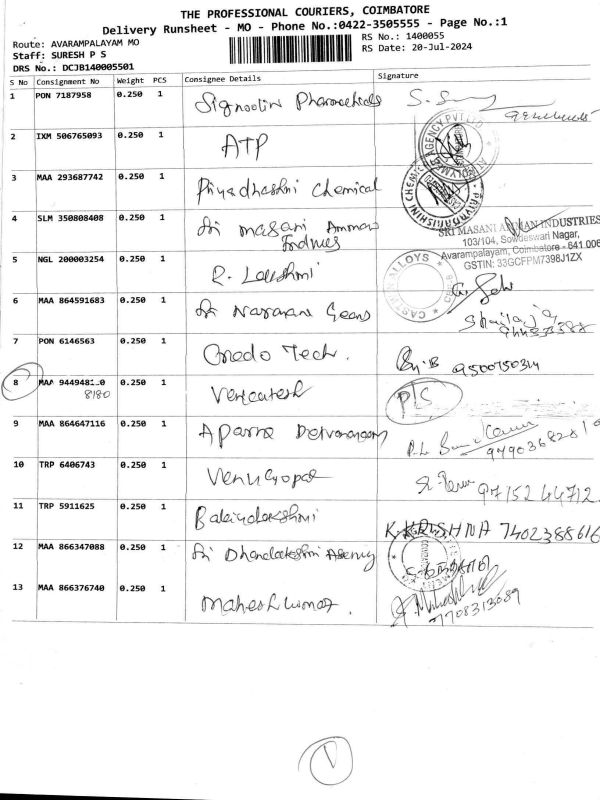 THE PROFESSIONAL COURIERS, COIMBATORE
Delivery Runsheet - MO - Phone No.:0422-3505555 - Page No.:1
Route: AVARAMPALAYAM MO
RS No.: 1400055
Staff: SURESH P S
RS Date: 20-Jul-2024
DRS No.: DCJB140005501
S No Consignment No Weight PCS Consignee Details Signature
1 PON 7187958 0.250 1
2 IXM 506765093 0.250 1 ATP
3 MAA 293687742 0.250 1 Priyadhashni Chemical
4 SLM 350808408 0.250 1 Sri Masani Amman
SRI MASANI AMMAN INDUSTRIES
103/104, Sowdeswari Nagar,
Avarampalayam, Coimbatore - 641 006
GSTIN: 33GCFPM7398J1ZX
5 NGL 200003254 0.250 1 R. Lakshmi
CASTWIN ALLOYS
6 MAA 864591683 0.250 1 Sri Narayana Gears
7 PON 6146563 0.250 1 Credo Tech.
8 MAA 0.250 1 Venkatesh P/S
8180
9 MAA 864647116 0.250 1 Aparna
10 TRP 6406743 0.250 1 Venugopal 97152 44712
11 TRP 5911625 0.250 1 K.KRISHNA 7402388616
12 MAA 866347088 0.250 1 Sri Dhanalakshmi Agency
13 MAA 866376740 0.250 1 Maheshkumar.
7708313089